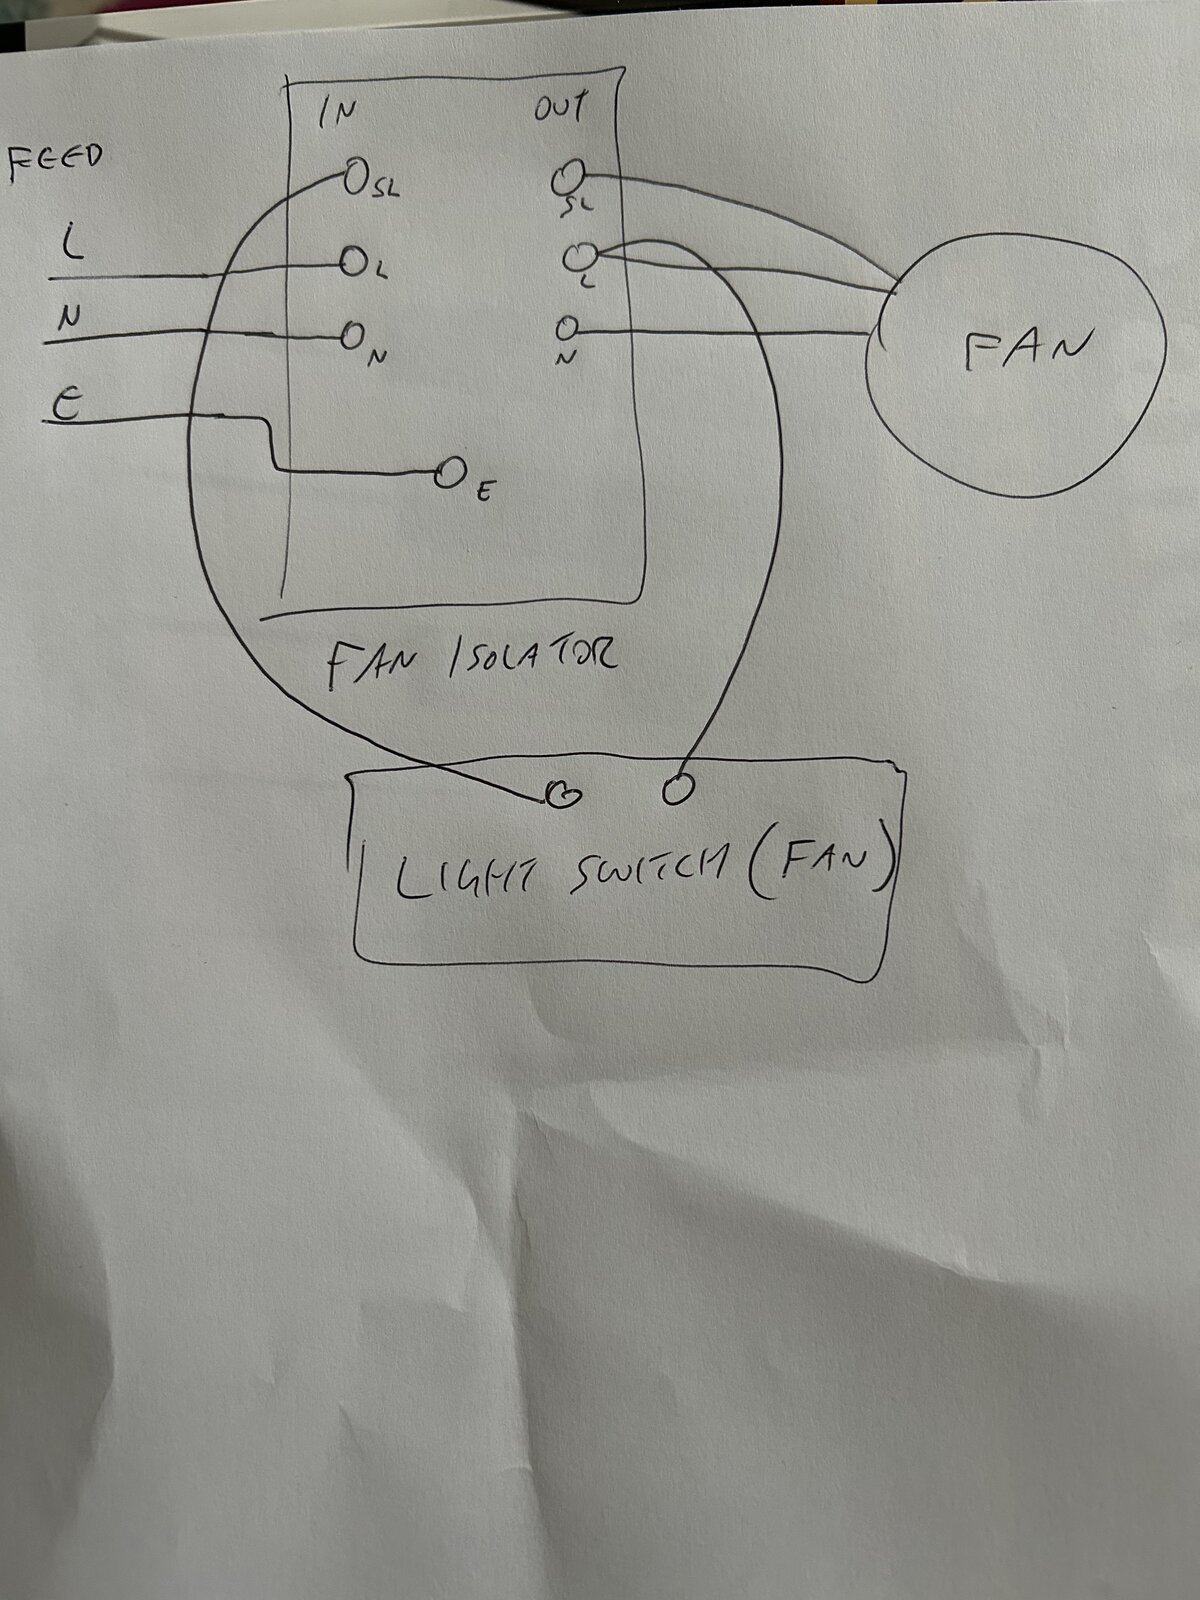 IN OUT
FEED
SL SL
L
L L
N
N N
E
E
FAN
FAN ISOLATOR
LIGHT SWITCH (FAN)